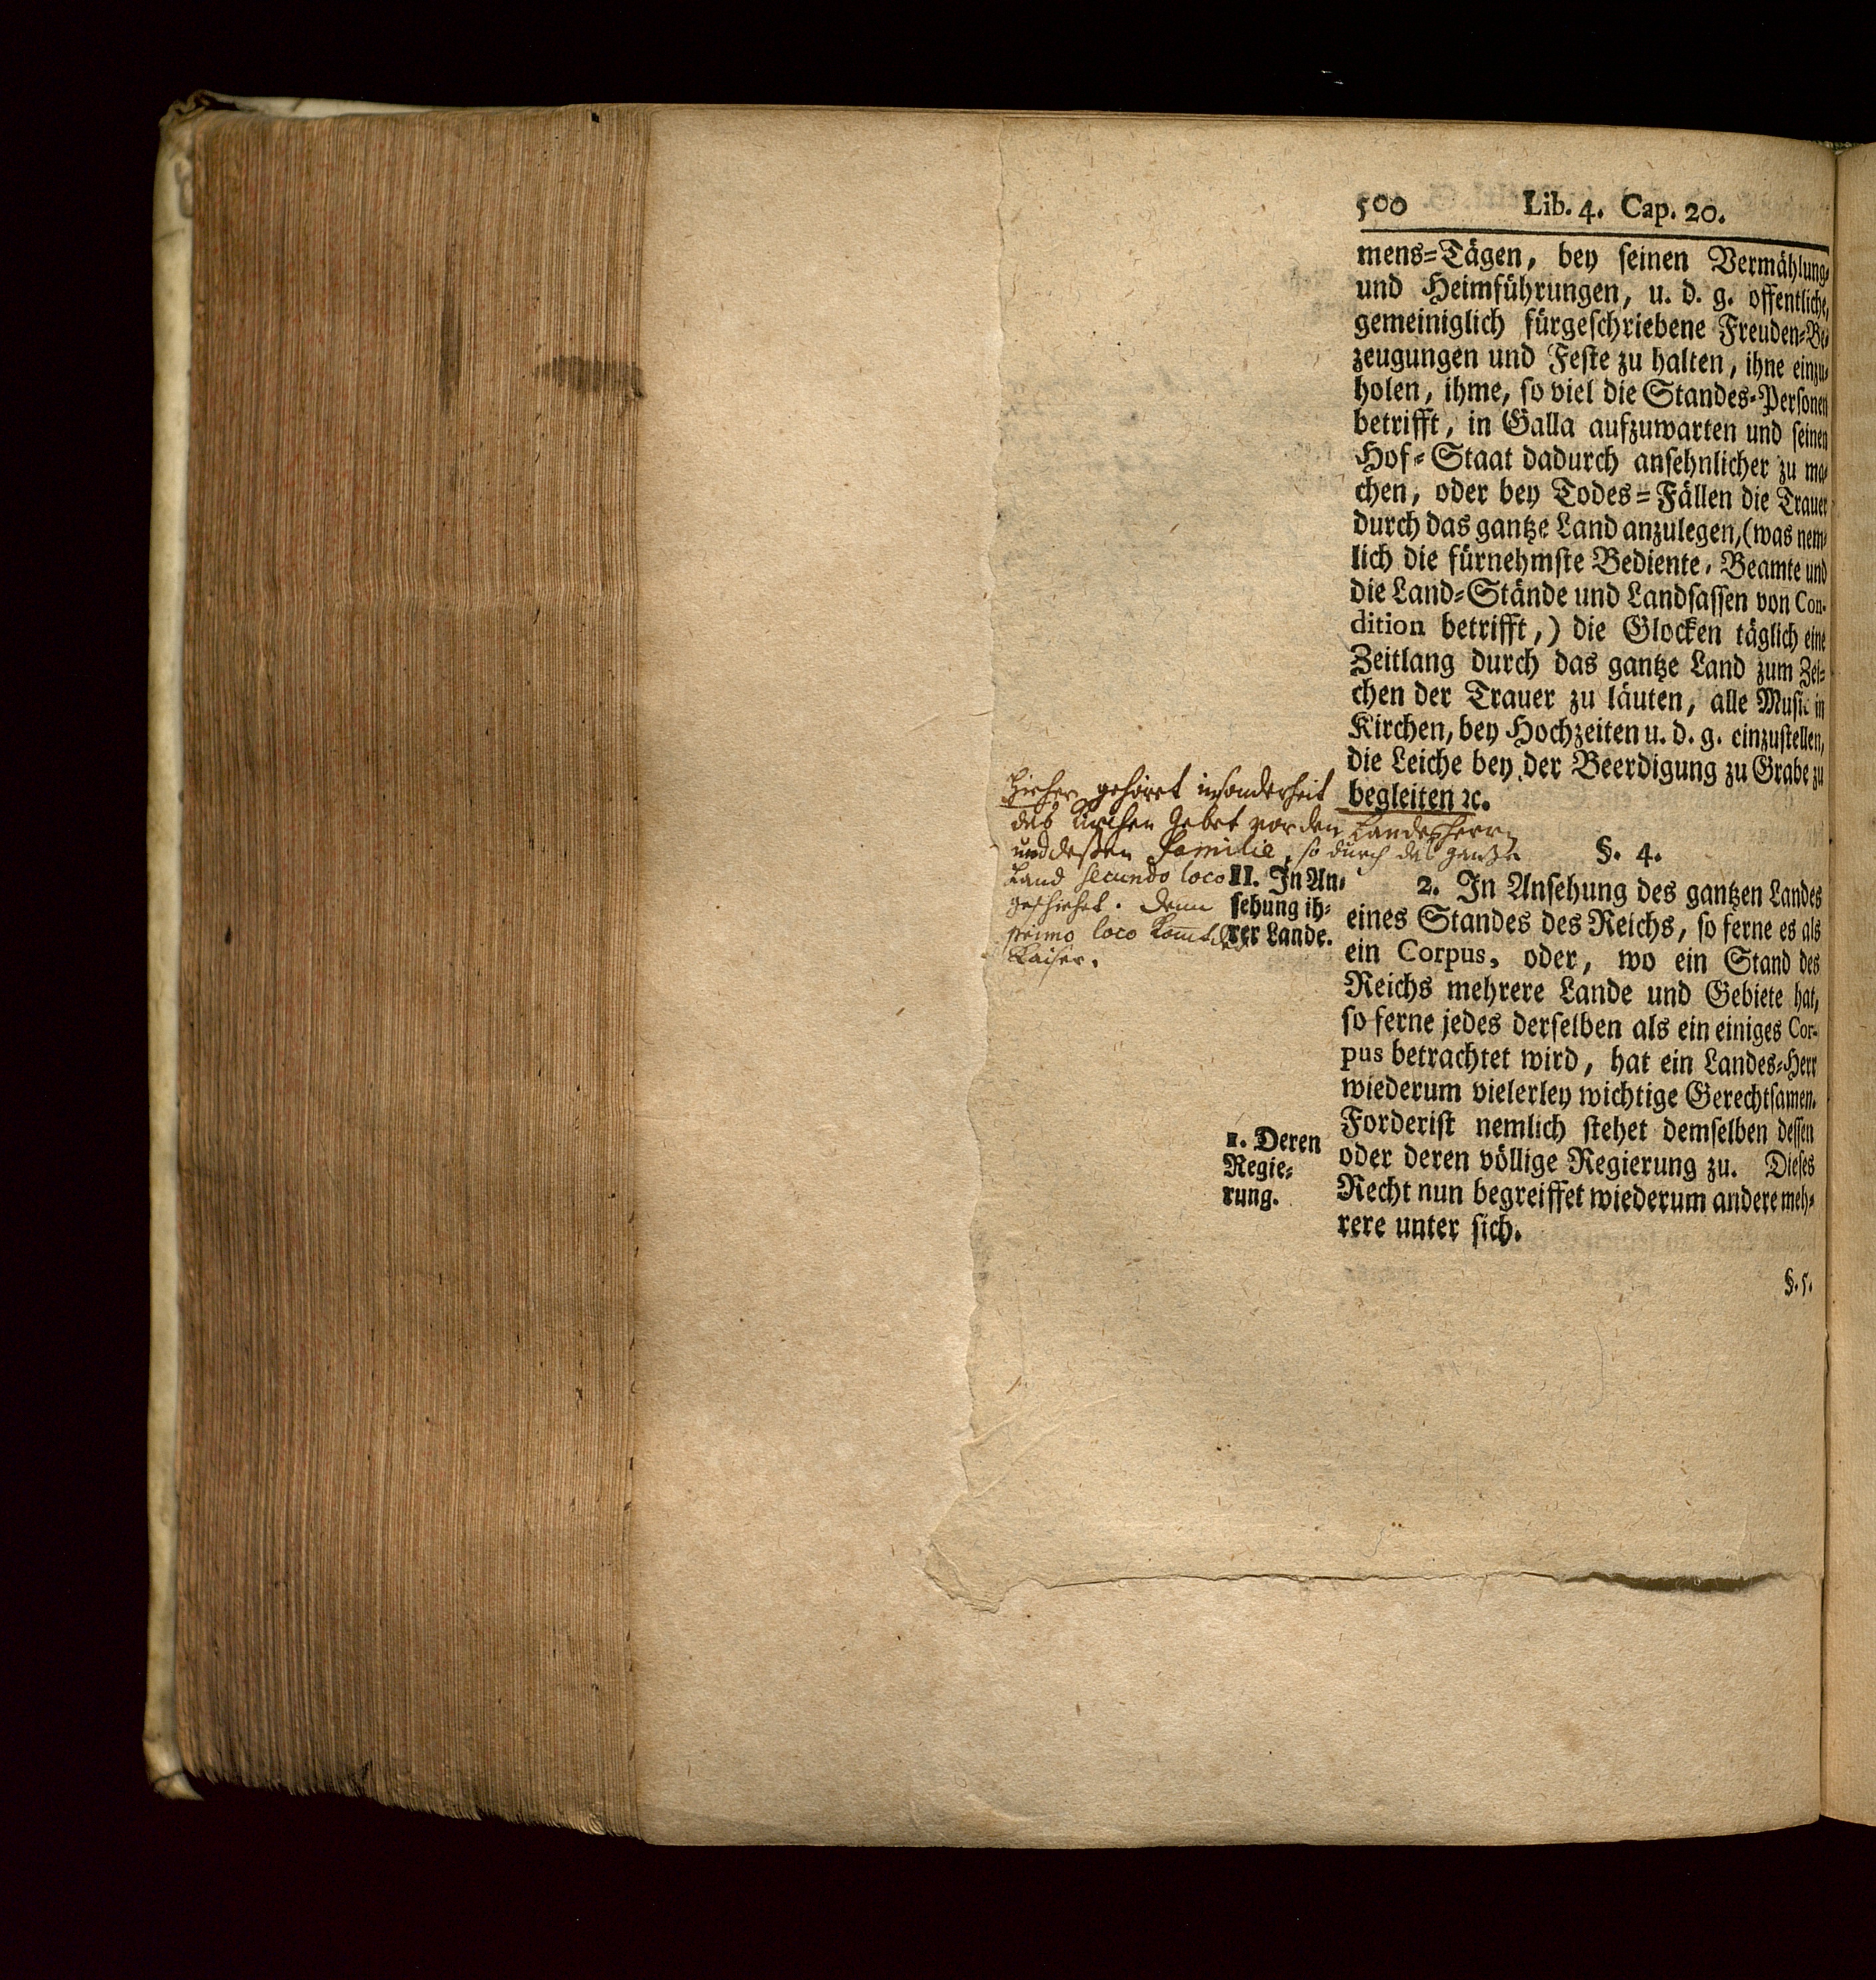 500 Lib. 4. Cap. 20.
mens-Tägen, bey seinen Vermählung-
und Heimführungen, u. d. g. offentliche,
gemeiniglich fürgeschriebene Freuden-Be-
zeugungen und Feste zu halten, ihne einzu-
holen, ihme, so viel die Standes-Personen
betrifft, in Galla aufzuwarten und seinen
Hof-Staat dadurch ansehnlicher zu ma-
chen, oder bey Todes-Fällen die Trauer
durch das gantze Land anzulegen, (was nem-
lich die fürnehmste Bediente, Beamte und
die Land-Stände und Landsassen von Con-
dition betrifft,) die Glocken täglich eine
Zeitlang durch das gantze Land zum Zei-
chen der Trauer zu läuten, alle Music in
Kirchen, bey Hochzeiten u. d. g. einzustellen,
die Leiche bey der Beerdigung zu Grabe zu
begleiten ꝛc.
Hieher gehöret insonderheit
das Kirchen Gebet vor den Landesherrn
und deßen Familie, so durch das gantze
Land secundo loco
geschiehet. Denn
primo loco kom̅t der
Kaiser.
§. 4.
II. In An-
sehung ih-
rer Lande.
2. In Ansehung des gantzen Landes
eines Standes des Reichs, so ferne es als
ein Corpus, oder, wo ein Stand des
Reichs mehrere Lande und Gebiete hat,
so ferne jedes derselben als ein einiges Cor-
pus betrachtet wird, hat ein Landes-Herr
wiederum vielerley wichtige Gerechtsamen.
1. Deren
Regie-
rung.
Forderist nemlich stehet demselben dessen
oder deren völlige Regierung zu. Dieses
Recht nun begreiffet wiederum andere meh-
rere unter sich.
§. 5.